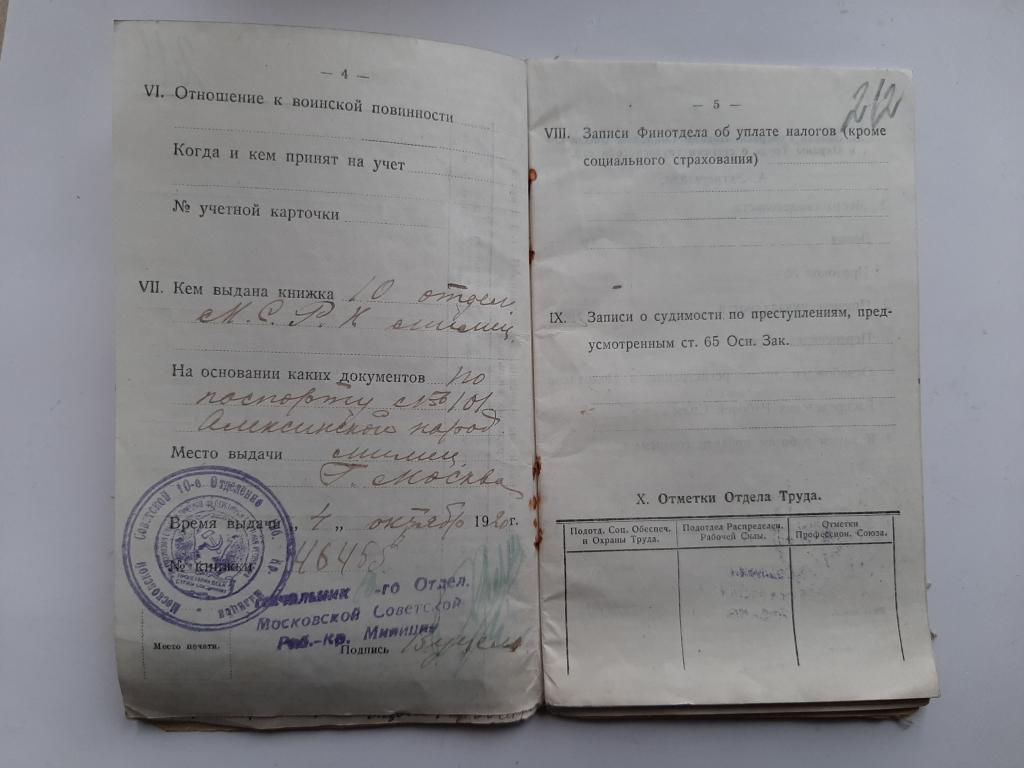 — 4 —
VI. Отношение к воинской повинности
Когда и кем принят на учет
№ учетной карточки
VII. Кем выдана книжка 10 отдел.
М. С. Р. К милиц.
На основании каких документов по
паспорту № 101
Алексинской народ.
милиц.
Место выдачи г. Москва
Время выдачи „ 4 „ октябр 1920 г.
№ книжки 46455
Московской Советской 10-е Отделение Раб. кр. Милиции
Начальник -го Отдел.
Московской Советской
Раб.-кр. Милиции
Место печати.
Подпись
— 5 —
212
VIII. Записи Финотдела об уплате налогов (кроме
социального страхования)
IX. Записи о судимости по преступлениям, пред-
усмотренным ст. 65 Осн. Зак.
X. Отметки Отдела Труда.
Подотд. Соц. Обеспеч.
и Охраны Труда.
Подотдел Распределен.
Рабочей Силы.
Отметки
Профессион. Союза.